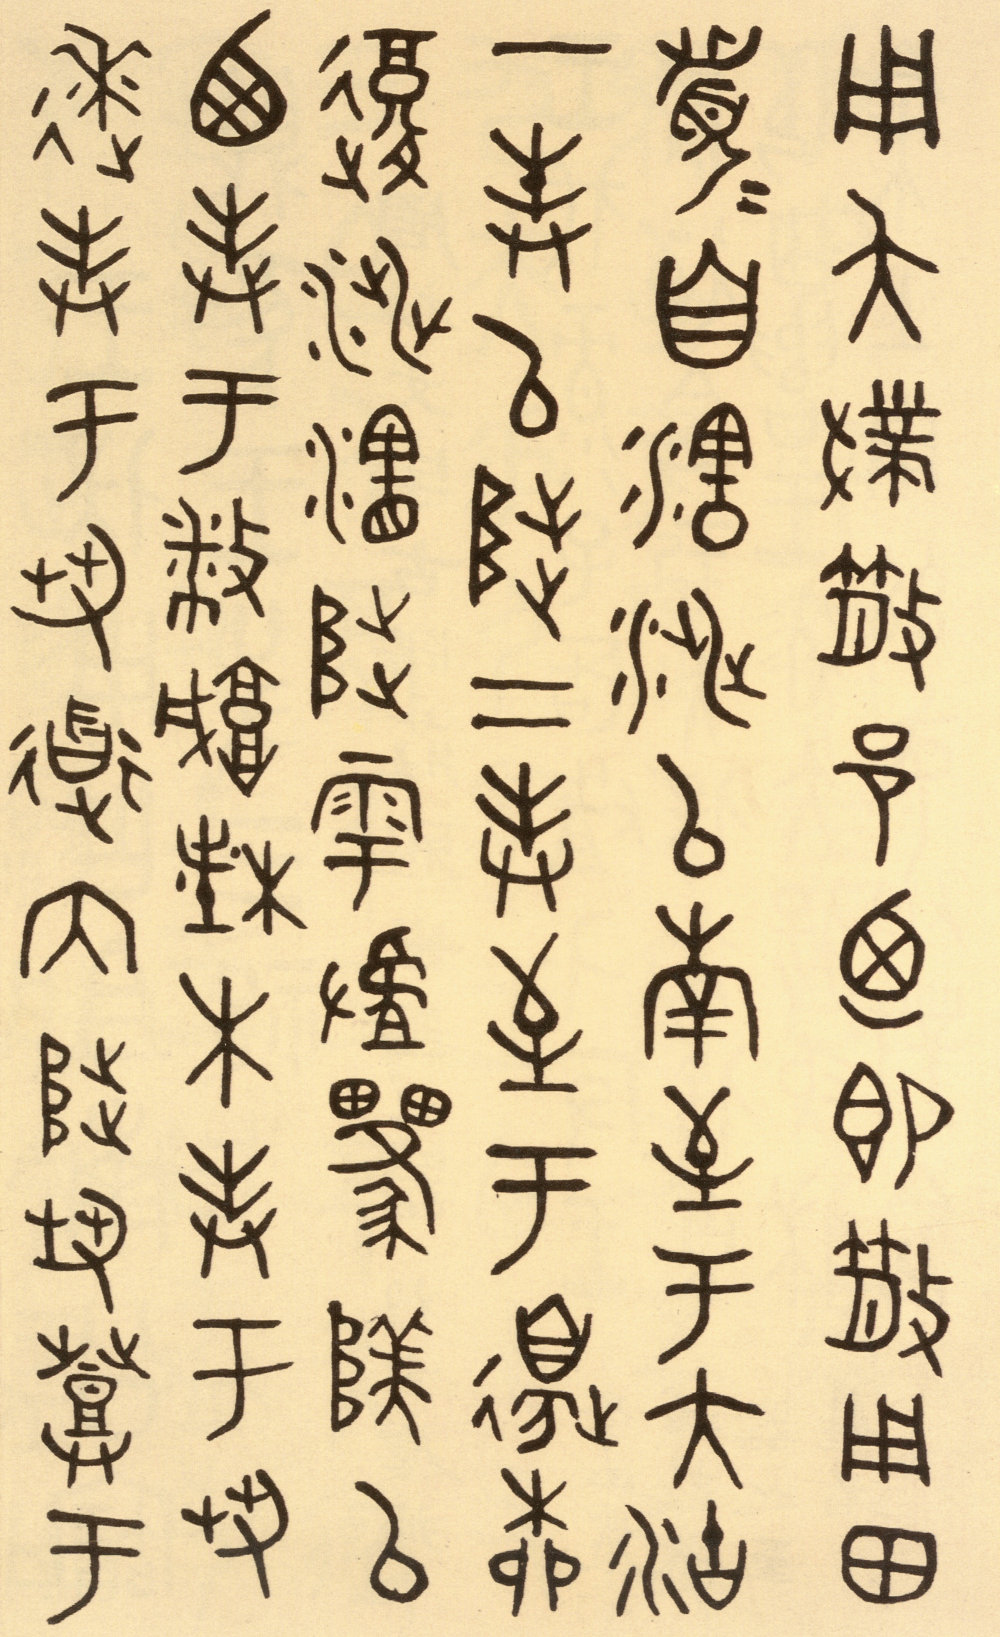 用夨撲散邑廼即散用田
眉自瀗涉以南至于大沽
一封以陟二封至于邊柳
復涉瀗陟雩𠭯邍𨻰以
西封于敝城楮木封于芻
逨封于芻道內陟芻登于